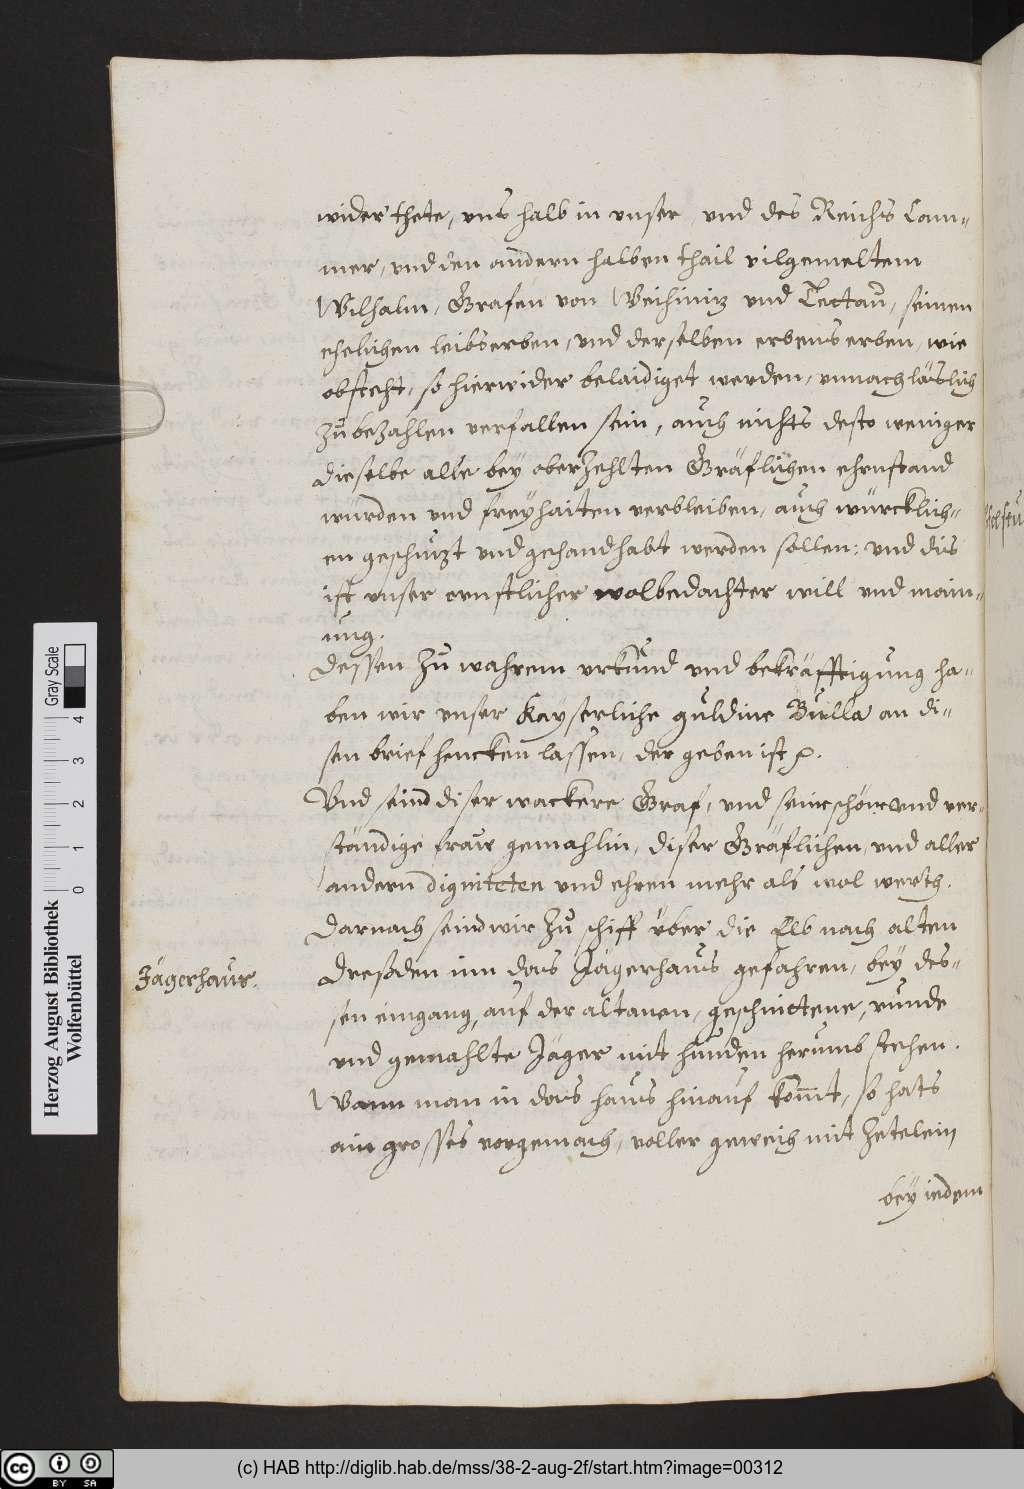 wider thete, uns halb in unser, und des Reichs Cam-
mer, und den andern halben thail vilgemeltem
Wilhalm, Grafen von Weihiniz und Tettau, seinen
ehelichen leibserben, und derselben erbenserben, wie
obsteht, so hierwider belaidiget werden, unnachläslich
zubezahlen verfallen sein, auch nichts desto weniger
dieselbe alle bey oberzehlten Gräflichen ehrnstand
würden und freyhaiten verbleiben, auch würcklich-
en geschuzt und gehandhabt werden sollen: und dis
ist unser ernstlicher wolbedachter will und main-
ung.
Dessen zu wahrem urkund und bekräfftigung ha-
ben wir unser Kayserliche guldine Bulla an di-
sen brief hencken lassen, der geben ist
Und seind diser wackere Graf, und seine schöne und ver-
ständige fraw gemahlin, diser Gräflichen, und aller
andern digniteten und ehren mehr als wol werth.
Darnach seind wir zu schiff über die Elb nach alten
Jägerhaus.
Dreßden inn das Jägerhaus gefahren, bey des-
sen eingang, auf der altanen, geschnittene, runde
und gemahlte Jäger mit hunden herumb stehen.
Wann man in das haus hinauf kom̄t, so hats
ain grosses vorgemach, voller geweih mit zetelein
bey iedem
Herzog August Bibliothek
Wolfenbüttel
0 1 2 3 4
Gray Scale
cc BY SA
(c) HAB http://diglib.hab.de/mss/38-2-aug-2f/start.htm?image=00312